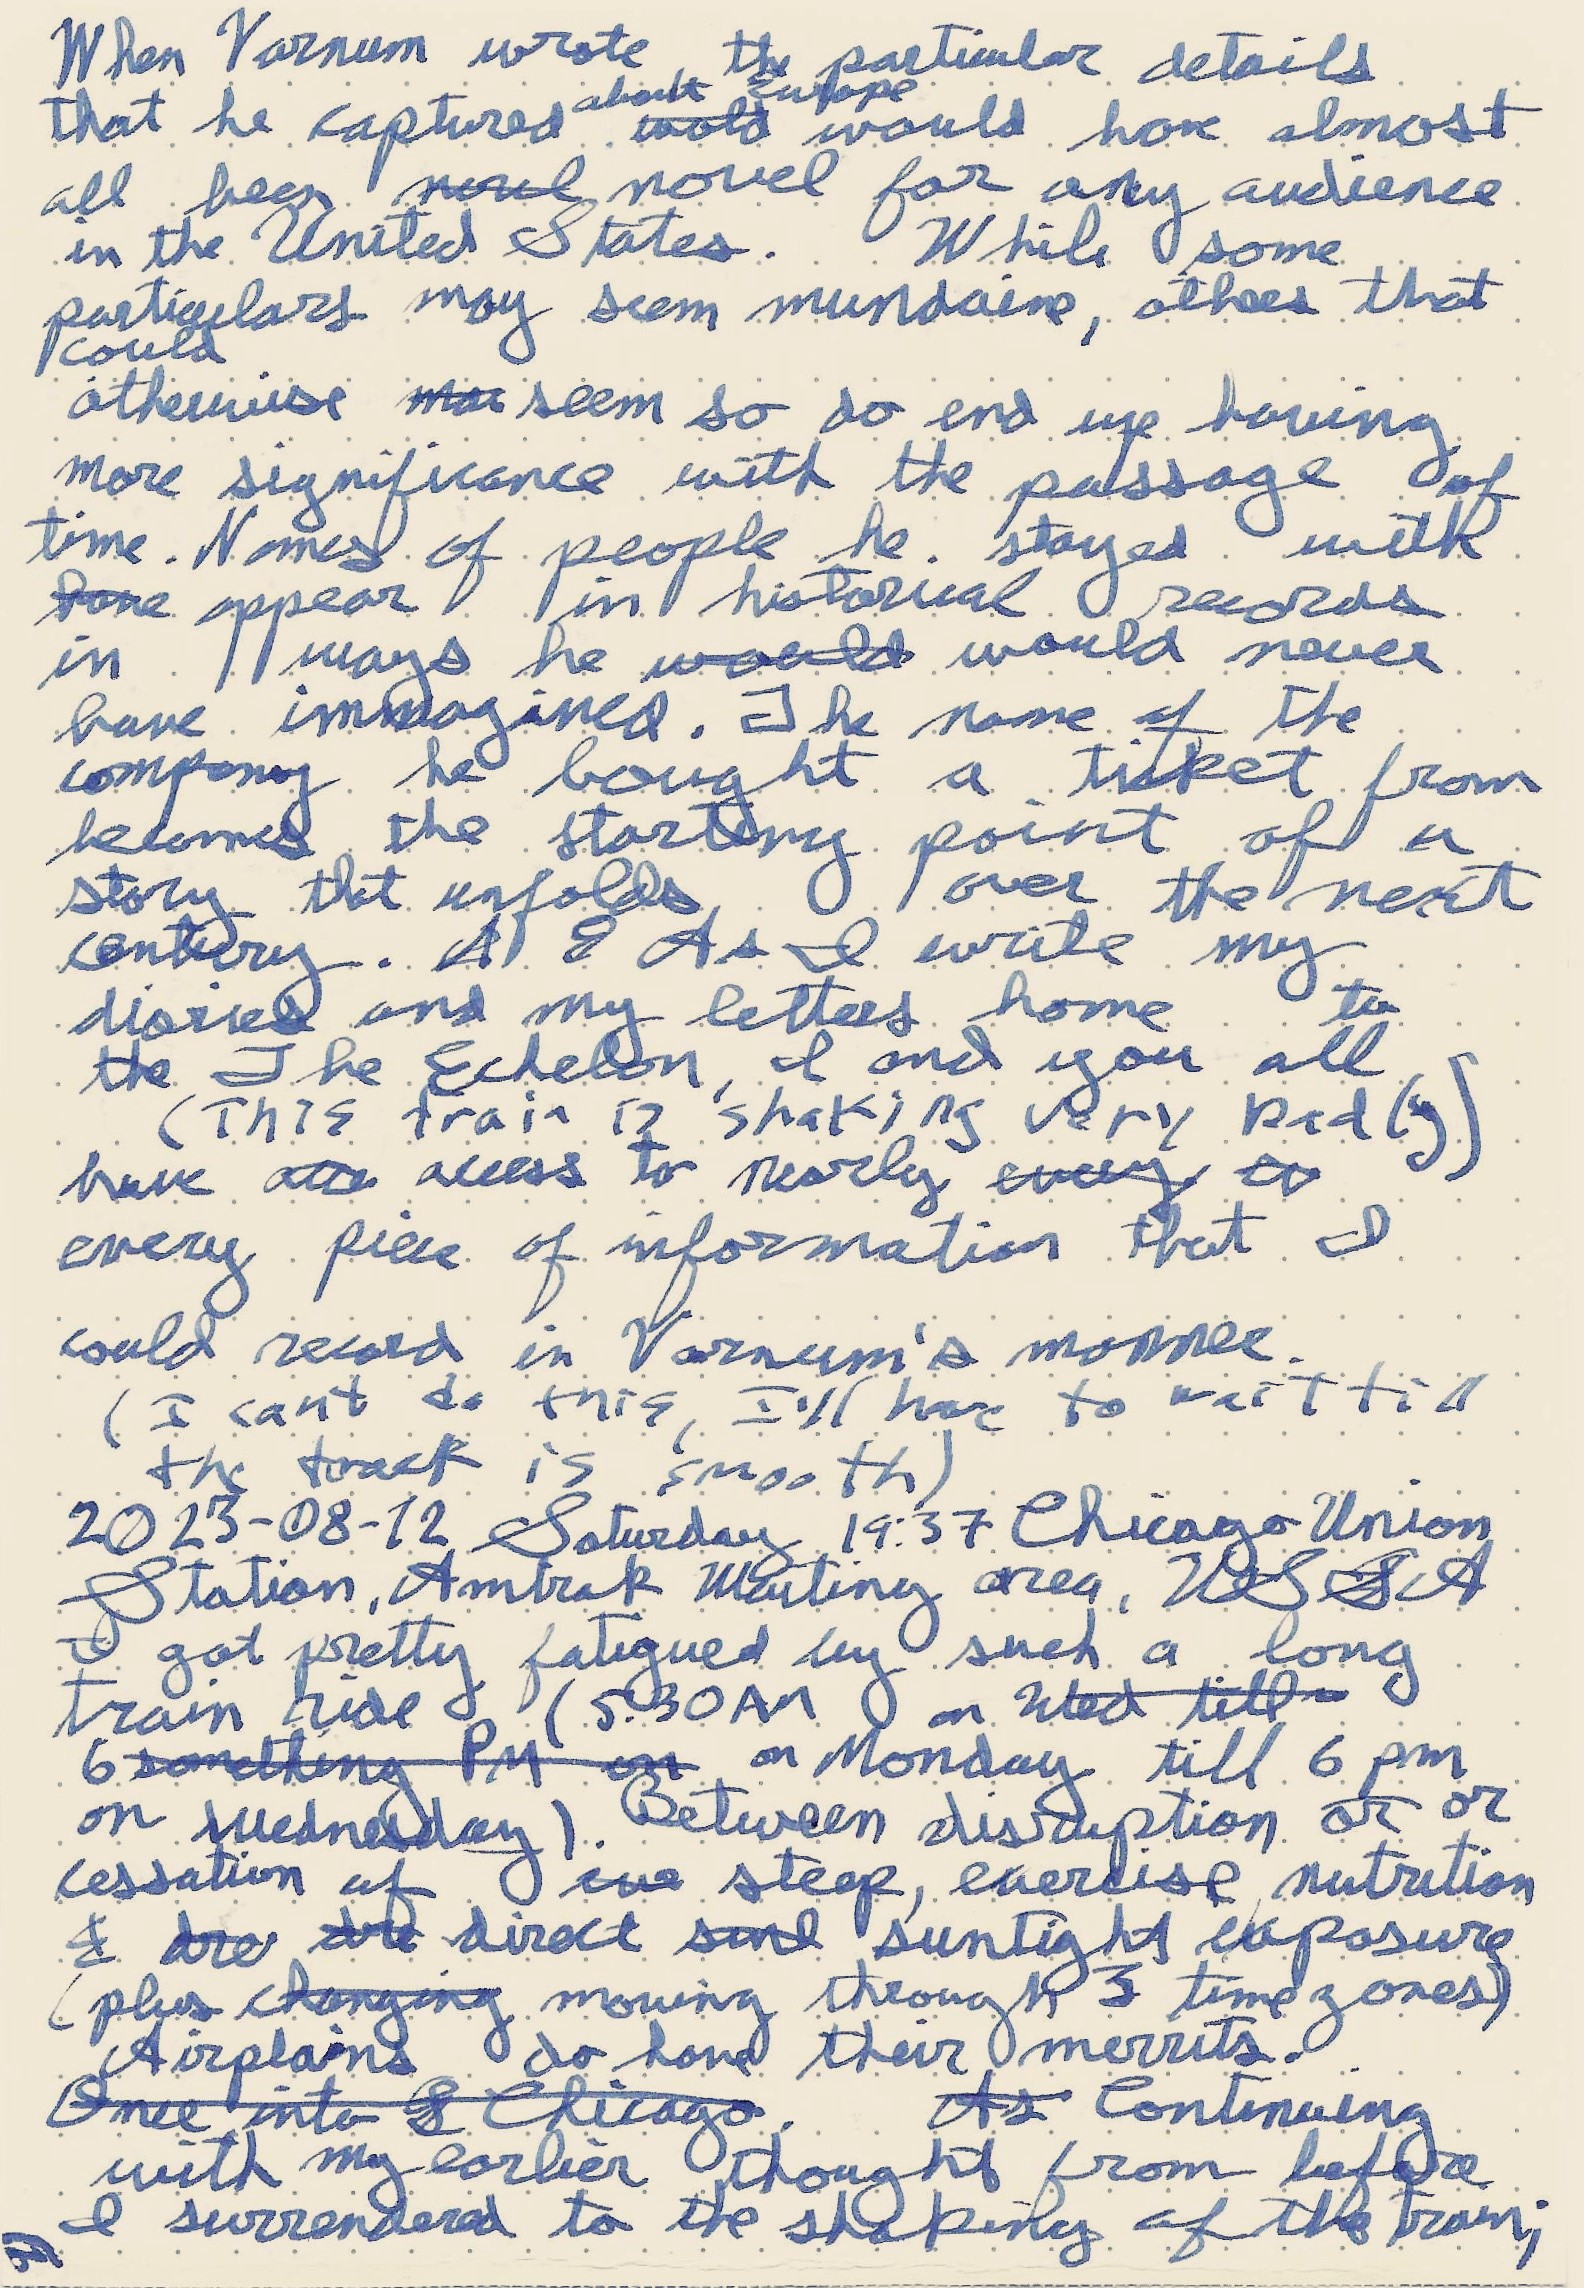 When Varnum wrote, the particular details
about Europe
that he captured wold would have almost
all been novel novel for any audience
in the United States. While some
particulars may seem mundaine, others that
could
otherwise seem so do end up having
more significance with the passage of
time. Names of people he stayed with
have appear in historical records
in ways he would would never
have immagined. The name of the
company he bought a ticket from
becomes the starting point of a
story that unfolds over the next
century. A E As I write my
diaries and my letters home to
the The Echelon, I and you all
(This train is shaking very badly)
have acce access to nearly every
every piece of information that I
could record in Varnum's manner.
(I can't do this, I'll have to wait till
the track is smooth)
2023-08-12 Saturday 19:37 Chicago Union
Station, Amtrak Waiting area, USA
I got pretty fatigued by such a long
train ride (5:30AM on Wed till
6 something PM on on Monday till 6 pm
on Wednesday). Between disruption or or
cessation of exe sleep, exercise, nutrition
& dre dre direct sunl sunlight exposure
(plus changing moving through 3 time zones)
Airplains do have their merrits.
Once into S Chicago. As Continuing
with my earlier thought from before
I surrendered to the shaking of the train;